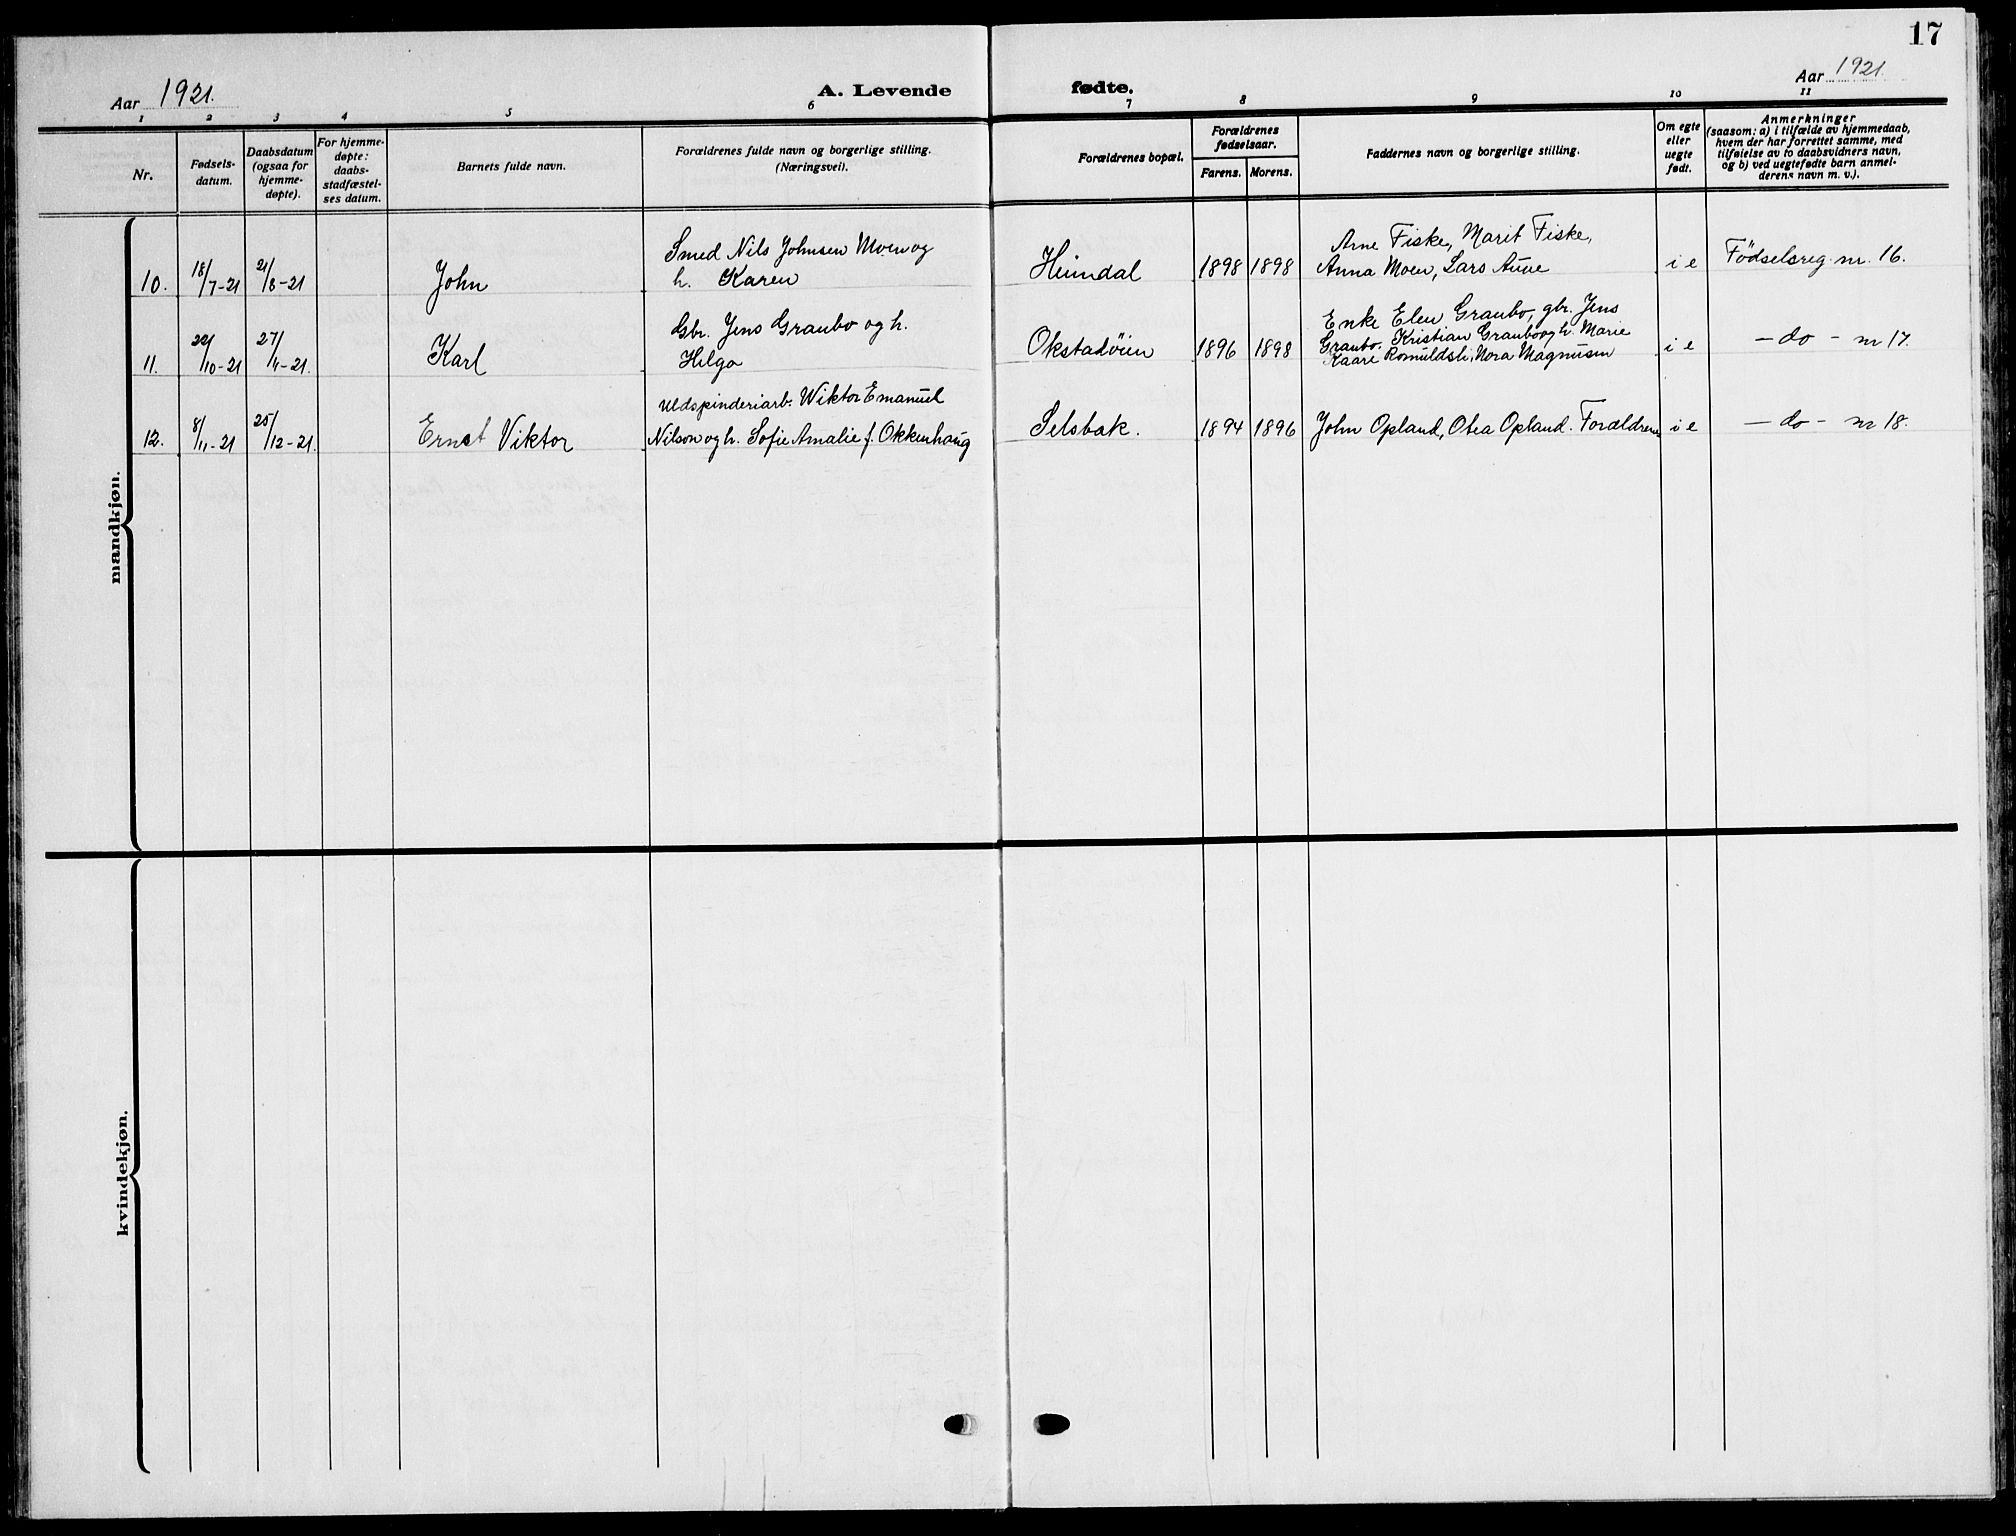 17
Aar 1921. A. Levende fødte. Aar 1921
1 2 3 4 5 6 7 8 9 10 11
Nr.
Fødsels-
datum.
Daabsdatum
(ogsaa for
hjemme-
døpte).
For hjemme-
døpte:
daabs-
stadfæstel-
ses datum.
Barnets fulde navn.
Forældrenes fulde navn og borgerlige stilling.
(Næringsvei).
Forældrenes bopæl.
Forældrenes
fødselsaar.
Farens. Morens.
Faddernes navn og borgerlige stilling.
Om egte
eller
uegte
født.
Anmerkninger
(saasom: a) i tilfælde av hjemmedaab,
hvem der har forrettet samme, med
tilføielse av to daabsvidners navn,
og b) ved uegtefødte barn anmel-
derens navn m. v.).
mandkjøn.
10. 18/7-21 21/8-21 John
Smed Nils Johnsen Moen og
h. Karen
Heimdal 1898 1898
Arne Fiske, Marit Fiske,
Anna Moen, Lars Aune
i e Födselsreg. nr. 16.
11. 22/10-21 27/11-21. Karl
Gbr. Jens Graubo og h.
Helga
Okstadöien 1896 1898
Enke Elen Graubo, gbr. Jens
Graubo. Kristian Graubo og h. Marie
Kaare Romuldsli, Nora Magnusen
i e - do - nr 17.
12. 8/11-21 25/12-21. Ernst Viktor
Uldspinderiarb. Wiktor Emanuel
Nilson og h. Sofie Amalie f. Okkenhaug
Selsbak. 1894 1896
John Opland, Otea Opland. Forældrene
i e - do - nr 18.
kvindekjøn.